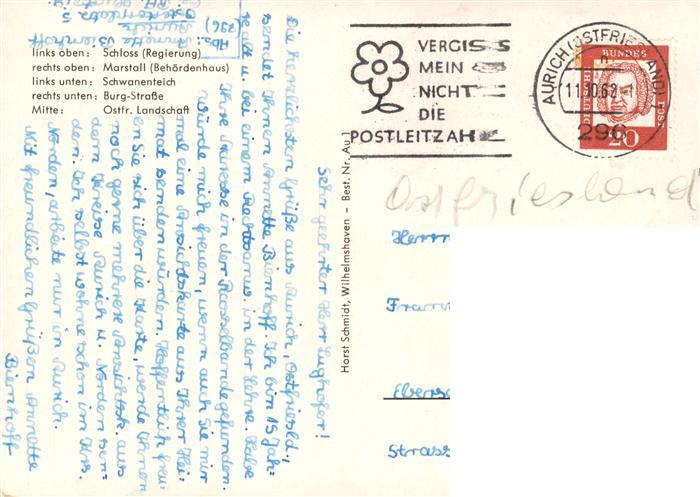 Abs.:
Annette Bienhoff
(296) Aurich
links oben: Schloss (Regierung)
rechts oben: Marstall (Behördenhaus)
links unten: Schwanenteich
rechts unten: Burg-Straße
Mitte: Ostfr. Landschaft
Sehr geehrter Herr Lughofer!
Die herzlichsten Grüße aus Aurich, Ostfriesld.,
sendet Ihnen Annette Bienhoff. Ich bin 15 Jah-
re alt u. bei einem Rechtsanw. in der Lehre. Habe
Ihre Adresse in der Rasselbande gefunden.
Würde mich freuen, wenn auch Sie mir
mal eine Ansichtskarte aus Ihrer Hei-
mat senden würden. Hoffentlich freu-
en Sie sich über die Karte, werde Ihnen
noch gerne mehrere Ansichtsk. aus
dem Kreise Aurich u. Norden sen-
den. Ich selbst wohne im Krs.
Norden, arbeite nur in Aurich.
Mit freundlichen Grüßen Annette
Bienhoff
Horst Schmidt, Wilhelmshaven – Best. Nr. Au 1
VERGISS
MEIN
NICHT
DIE
POSTLEITZAHL
AURICH (OSTFRIESLAND)
11.10.62
296
DEUTSCHE BUNDESPOST
20
Ostfriesland
Herrn
Fran
Ebens
Strass